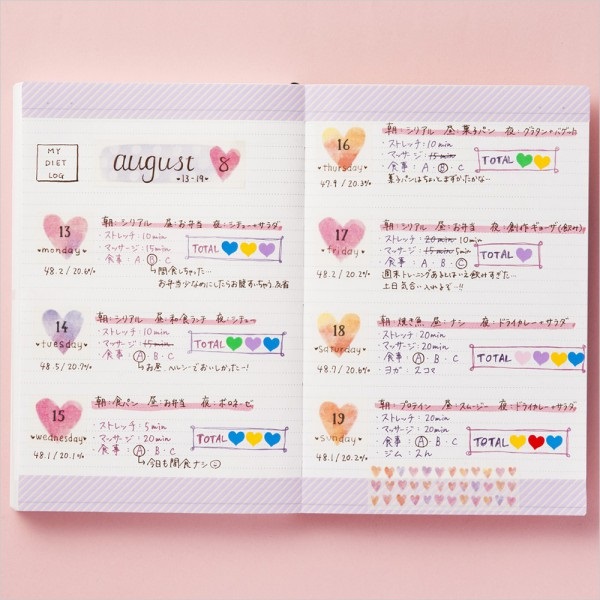 MY
DIET
LOG
august 8
•13-19•
13
monday
48.2 / 20.6%
朝:シリアル 昼:お弁当 夜:シチュー+サラダ
・ストレッチ:10min
・マッサージ:15min
・食事:A・B・C
TOTAL
→間食しちゃった…
お弁当少なめにしたらお腹すいちゃう。反省
14
tuesday
48.5 / 20.7%
朝:シリアル 昼:和食ランチ 夜:シチュー
・ストレッチ:10min
・マッサージ:15min
・食事:A・B・C
TOTAL
→お昼、ヘルシーでおいしかったー!
15
wednesday
48.1 / 20.1%
朝:食パン 昼:お弁当 夜:ボロネーゼ
・ストレッチ:5min
・マッサージ:20min
・食事:A・B・C
TOTAL
→今日も間食ナシ
16
thursday
47.9 / 20.3%
朝:シリアル 昼:菓子パン 夜:グラタン+バゲット
・ストレッチ:10min
・マッサージ:15min
・食事:A・B・C
TOTAL
菓子パンはちょっとまずかったかな…
17
friday
48.2 / 20.2%
朝:シリアル 昼:お弁当 夜:創作ギョーザ(飲み!)
・ストレッチ:20min 10min
・マッサージ:15min 5min
・食事:A・B・C
TOTAL
週末トレーニングあるとはいえ飲みすぎた…
土日気合い入れるぞー!!
18
saturday
48.7 / 20.6%
朝:焼き魚 昼:ナシ 夜:ドライカレー+サラダ
・ストレッチ:20min
・マッサージ:20min
・食事:A・B・C
・ヨガ:2コマ
TOTAL
19
sunday
48.1 / 20.2%
朝:プロテイン 昼:スムージー 夜:ドライカレー+サラダ
・ストレッチ:20min
・マッサージ:20min
・食事:A・B・C
・ジム:
TOTAL